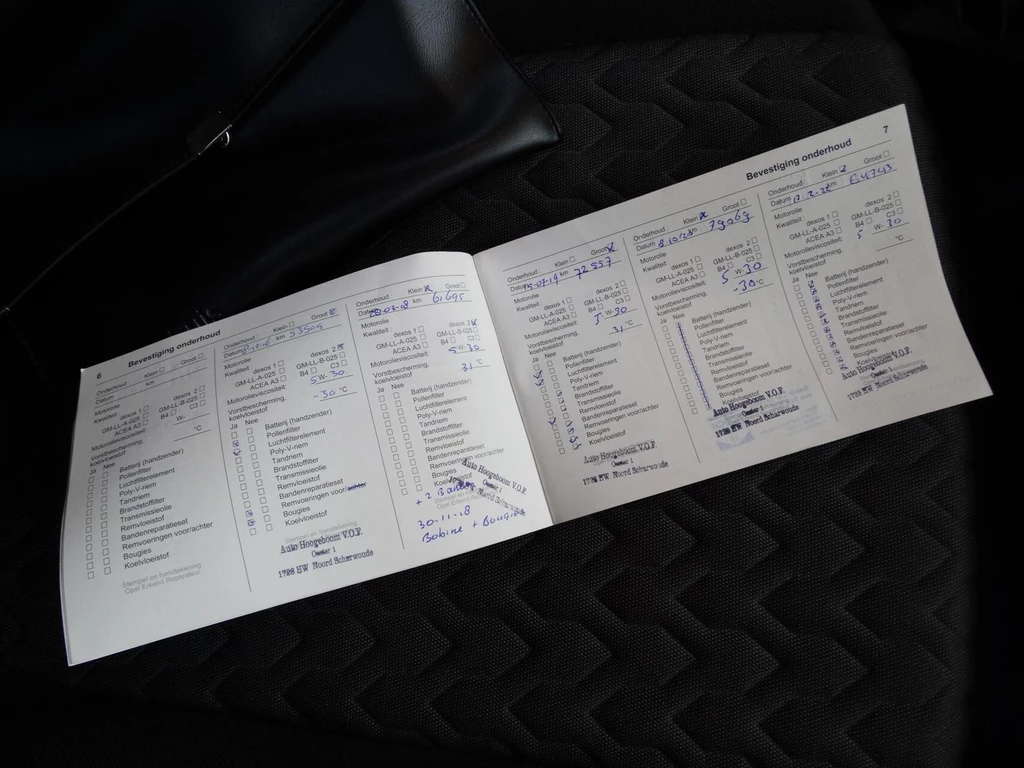 6
Bevestiging onderhoud
Onderhoud Klein Groot
km
Motorolie
Kwaliteit: dexos 1 dexos 2
GM-LL-A-025 GM-LL-B-025
ACEA A3 B4 C3
Motorolieviscositeit: W-
Vorstbescherming, °C
koelvloeistof
Ja Nee
Batterij (handzender)
Pollenfilter
Luchtfilterelement
Poly-V-riem
Tandriem
Brandstoffilter
Transmissieolie
Remvloeistof
Bandenreparatieset
Remvoeringen voor/achter
Bougies
Koelvloeistof
Stempel en handtekening
Opel Erkend Reparateur
Onderhoud: Klein Groot
Datum km
Motorolie
Kwaliteit: dexos 1 dexos 2
GM-LL-A-025 GM-LL-B-025
ACEA A3 B4 C3
Motorolieviscositeit: 5 W- 30
Vorstbescherming, -30 °C
koelvloeistof
Ja Nee
Batterij (handzender)
Pollenfilter
Luchtfilterelement
Poly-V-riem
Tandriem
Brandstoffilter
Transmissieolie
Remvloeistof
Bandenreparatieset
Remvoeringen voor/achter
Bougies
Koelvloeistof
Stempel en handtekening
Auto Hoogeboom V.O.F.
Oostar 1
1723 HW Noord Scharwoude
Onderhoud Klein Groot
Datum km 61695
Motorolie
Kwaliteit: dexos 1 dexos 2
GM-LL-A-025 GM-LL-B-025
ACEA A3 B4 C3
Motorolieviscositeit: 5 W- 30
Vorstbescherming, 31 °C
koelvloeistof
Ja Nee
Batterij (handzender)
Pollenfilter
Luchtfilterelement
Poly-V-riem
Tandriem
Brandstoffilter
Transmissieolie
Remvloeistof
Bandenreparatieset
Remvoeringen voor/achter
Bougies
Koelvloeistof
Auto Hoogeboom V.O.F.
Noord Scharwoude
+ 2 Banden
30-11-18
Bobine + Bougies
7
Bevestiging onderhoud
Onderhoud Klein Groot
Datum km 72557
Motorolie
Kwaliteit: dexos 1 dexos 2
GM-LL-A-025 GM-LL-B-025
ACEA A3 B4 C3
Motorolieviscositeit: 5 W- 30
Vorstbescherming, 31 °C
koelvloeistof
Ja Nee
Batterij (handzender)
Pollenfilter
Luchtfilterelement
Poly-V-riem
Tandriem
Brandstoffilter
Transmissieolie
Remvloeistof
Bandenreparatieset
Remvoeringen voor/achter
Bougies
Koelvloeistof
Auto Hoogeboom V.O.F.
Oostar 1
1723 HW Noord Scharwoude
Onderhoud: Klein Groot
Datum km 79069
Motorolie
Kwaliteit: dexos 1 dexos 2
GM-LL-A-025 GM-LL-B-025
ACEA A3 B4 C3
Motorolieviscositeit: 5 W- 30
Vorstbescherming, -30 °C
koelvloeistof
Ja Nee
Batterij (handzender)
Pollenfilter
Luchtfilterelement
Poly-V-riem
Tandriem
Brandstoffilter
Transmissieolie
Remvloeistof
Bandenreparatieset
Remvoeringen voor/achter
Bougies
Auto Hoogeboom V.O.F.
Oostar 1
1723 HW Noord Scharwoude
Onderhoud: Klein Groot
Datum km
Motorolie
Kwaliteit: dexos 1 dexos 2
GM-LL-A-025 GM-LL-B-025
ACEA A3 B4 C3
Motorolieviscositeit: 5 W- 30
Vorstbescherming, °C
koelvloeistof
Ja Nee
Batterij (handzender)
Pollenfilter
Luchtfilterelement
Poly-V-riem
Tandriem
Brandstoffilter
Transmissieolie
Remvloeistof
Bandenreparatieset
Remvoeringen voor/achter
Bougies
Auto Hoogeboom V.O.F.
Oostar 1
1723 HW Noord Scharwoude